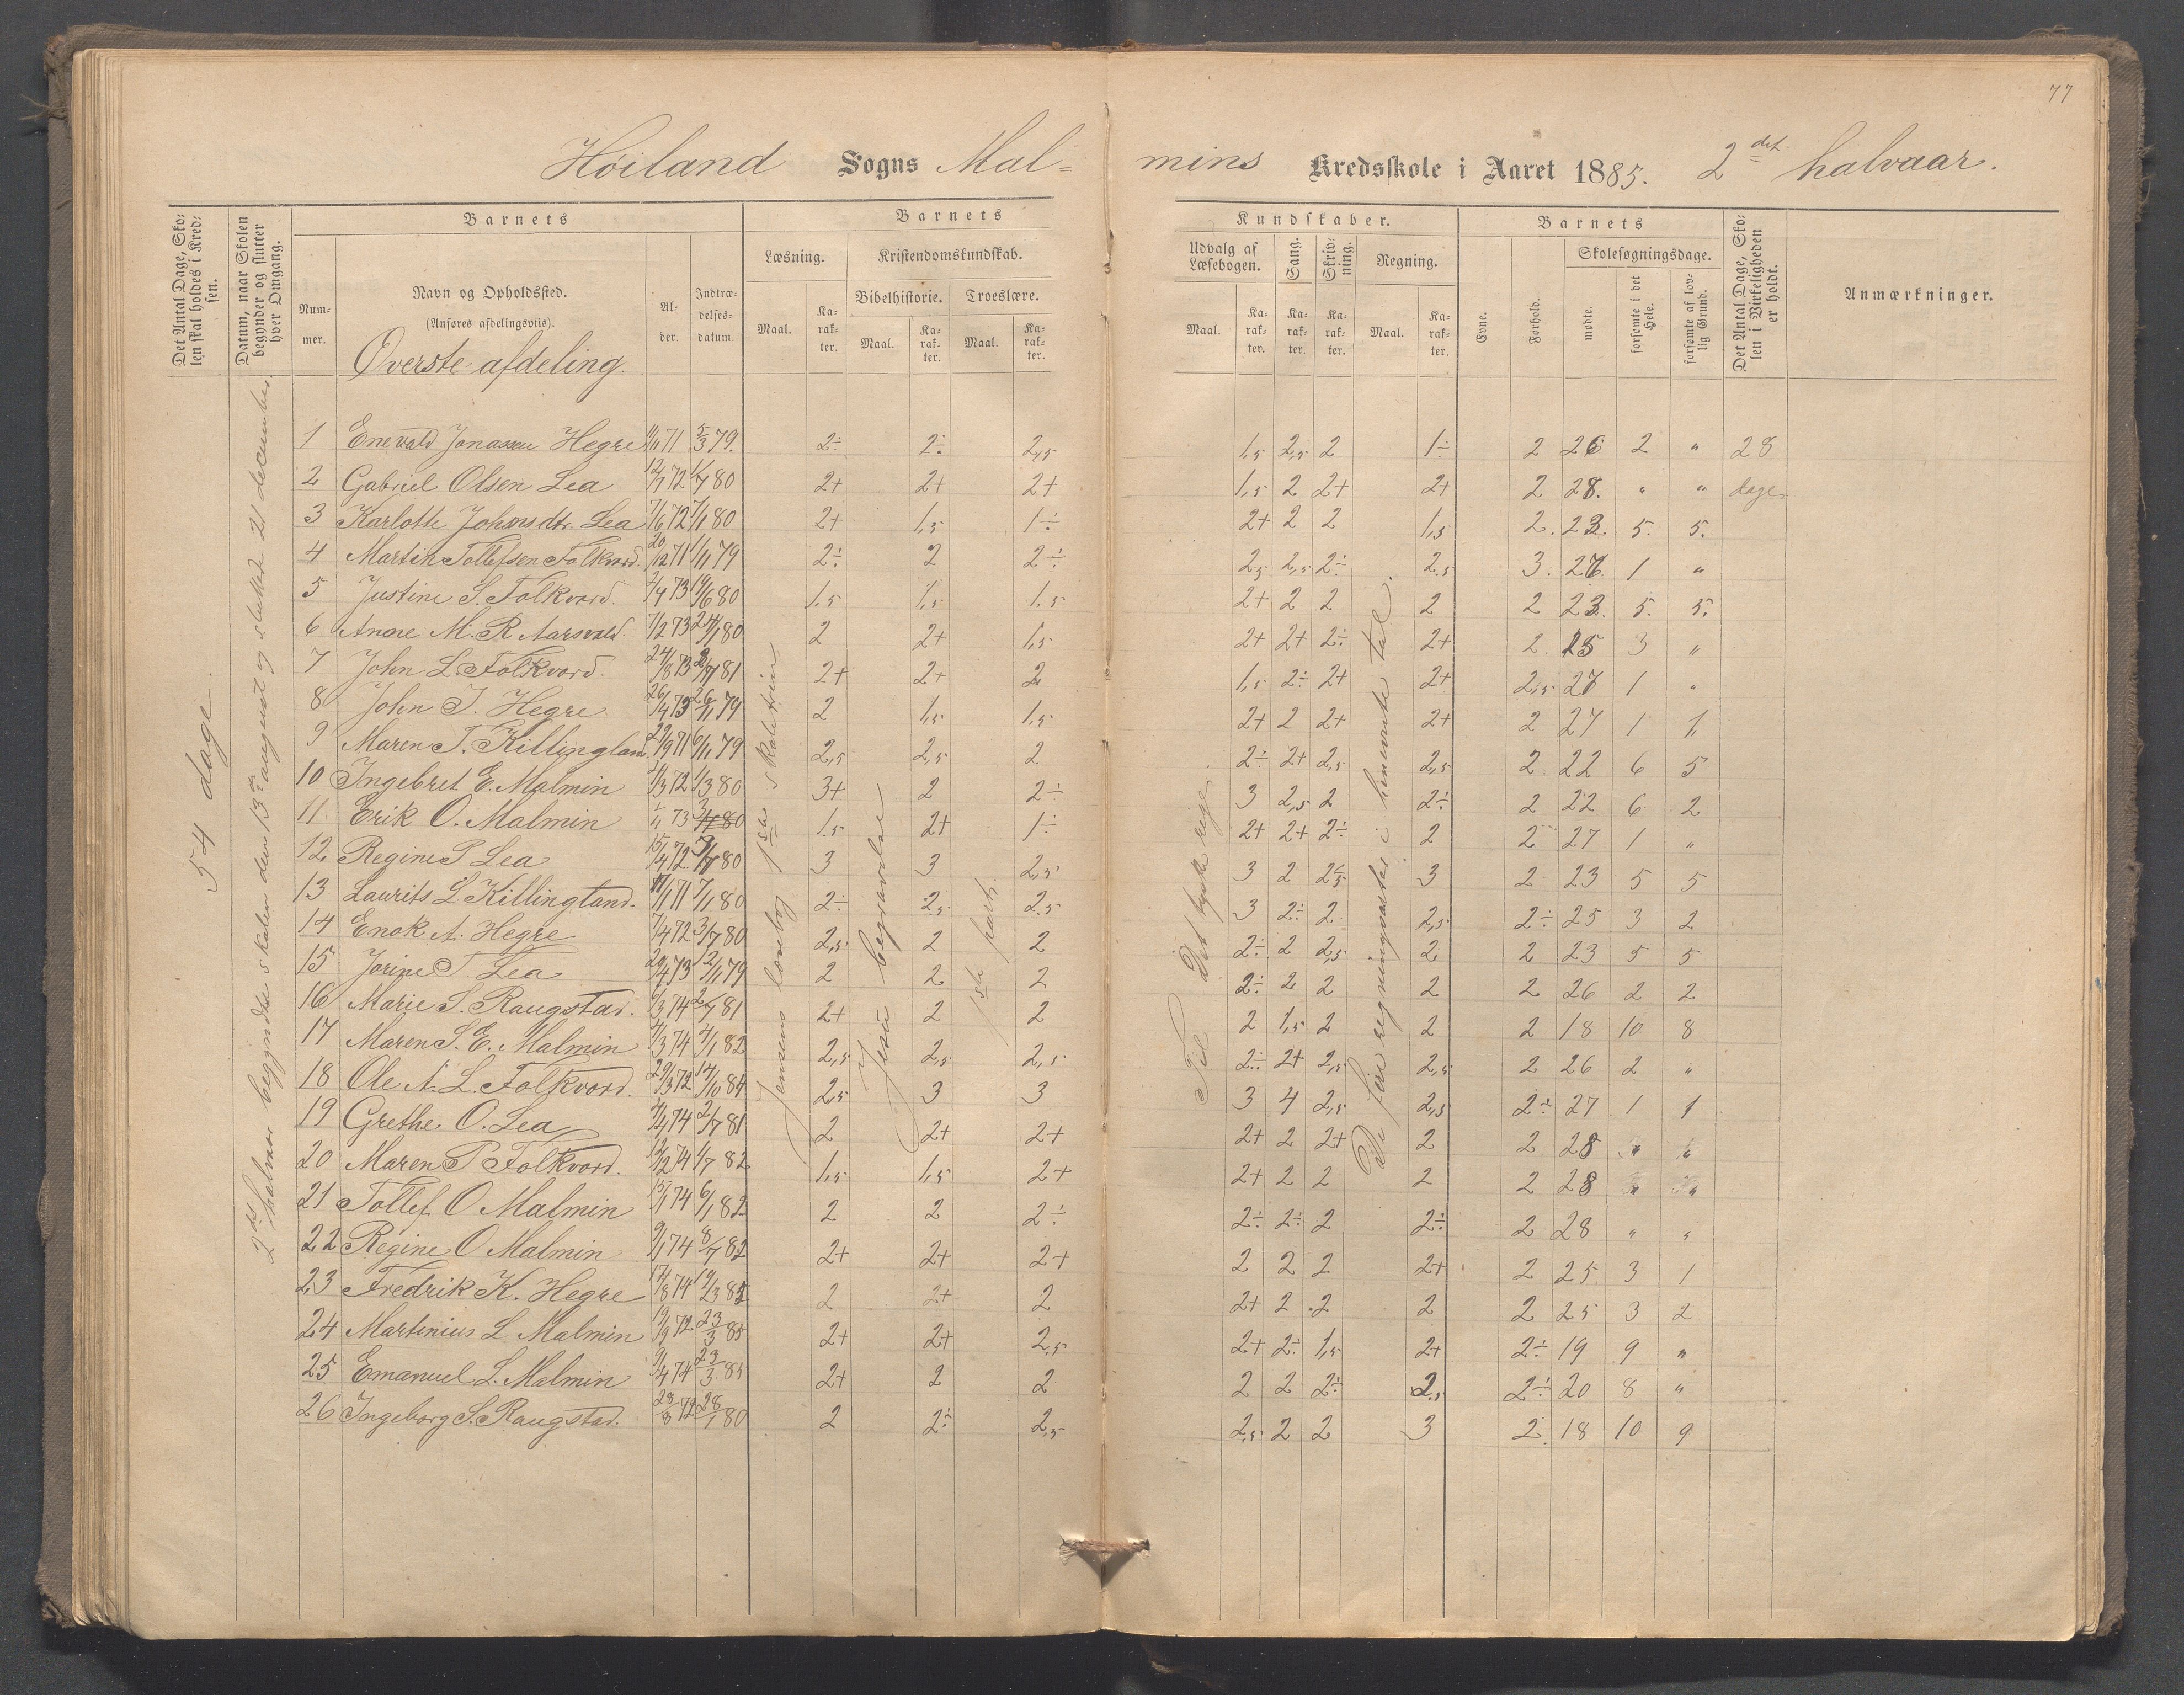 77
Høiland Sogns Mal=mins Kredsskole i Aaret 1885. 2det halvaar.
Det Antal Dage, Skolen skal holdes i Kredsen.
Datum, naar Skolen begynder og slutter hver Omgang.
Barnets
Nummer.
Navn og Opholdssted.
(Anføres afdelingsviis).
Alder.
Indtrædelsesdatum.
Barnets Kundskaber.
Læsning.
Maal.
Karakter.
Kristendomskundskab.
Bibelhistorie.
Maal.
Karakter.
Troeslære.
Maal.
Karakter.
Udvalg af Læsebogen.
Maal.
Karakter.
Sang.
Karakter.
Skrivning.
Karakter.
Regning.
Maal.
Karakter.
Barnets
Evne.
Forhold.
Skolesøgningsdage.
mødte.
forsømte i det Hele.
forsømte af lovlig Grund.
Det Antal Dage, Skolen i Virkeligheden er holdt.
Anmærkninger.
Øverste afdeling.
54 dage.
2det halvaar begyndte skolen den 13de august og sluttet 21 december.
Jesu begravelse
1ste part.
Det tyske rige.
De fire regningsarter i benævnte tal.
1 Enevald Jonassen Hegre 11/11 71 5/3 79. 2÷ 2÷ 2,5 1,5 2,5 2 1÷ 2 26 2 " 28
2 Gabriel Olsen Lea 12/1 72 1/7 80 2+ 2+ 2+ 1,5 2 2+ 2+ 2 28. " " dage
3 Karlotte Johnsdtr. Lea 7/6 72 7/1 80 2+ 1,5 1÷ 2+ 2 2 1,5 2. 23. 5. 5.
4 Martin Tollefsen Folkvord. 20/12 71 1/11 79 2÷ 2 2÷ 2,5 2,5 2÷ 2,5 3. 27. 1 "
5 Justine S. Folkvord. 2/4 73 19/6 80 1,5 1,5 1,5 2+ 2 2 2 2 23. 5. 5.
6 Anne M. R Aarsvold. 7/2 73 24/1 80 2 2+ 1,5 2+ 2+ 2÷ 2+ 2. 25 3 "
7 John L Folkvord. 24/8 73 2/7 81 2+ 2+ 2 1,5 2÷ 2+ 2+ 2,5 27 1 "
8 John T. Hegre 26/4 73 26/11 79 2 1,5 1,5 2+ 2 2+ 2+ 2 27 1 1
9 Maren T. Killingland 29/9 71 6/11 79 2,5 2,5 2 2÷ 2+ 2,5 2,5 2. 22 6 5
10 Ingebret E. Malmin 4/3 72 1/3 80 3+ 2 2÷ 3 2,5 2 2÷ 2 22 6 2
11 Erik O. Malmin 1/11 73 3/7 80 1,5 2+ 1÷ 2+ 2+ 2÷ 2 2 27 1 "
12 Regine P Lea 15/4 72. 7/7 80 3 3 2,5 3 2 2,5 3 2 23 5 5
13 Laurits L Killingland. 11/1 71 7/1 80 2÷ 2,5 2,5 3 2÷ 2 2,5 2÷ 25 3 2
14 Enok A. Hegre 7/4 72 3/7 80 2,5 2 2 2÷ 2 2,5 2 2 23 5 5
15 Jorine T. Lea 20/4 73 12/1 79 2 2 2 2÷ 2 2 2 2 26 2 2
16 Marie S. Raugstad. 6/3 74 2/7 81 2+ 2 2 2 1,5 2 2 2 18 10 8
17 Maren S. E. Malmin 4/3 74 4/1 82 2,5 2,5 2,5 2÷ 2+ 2,5 2,5 2 26 2 "
18 Ole A. L. Folkvord. 29/3 72 14/10 84 2,5 3 3 3 4 2,5 2,5 2÷ 27 1 1
19 Grethe O. Lea 4/4 74 2/7 81 2 2+ 2+ 2+ 2 2+ 2 2 28 " "
20 Maren P Folkvord. 12/2 74 1/7 82 1,5 1,5 2+ 2+ 2 2 2 2 28 " "
21 Tollef O Malmin 15/1 74 6/1 82 2 2 2÷ 2÷ 2÷ 2 2÷ 2 28 " "
22 Regine O Malmin 9/1 74 8/7 82 2+ 2+ 2+ 2 2 2 2+ 2 25 3 1
23 Fredrik K. Hegre 17/8 74 19/3 82 2 2+ 2 2+ 2 2 2 2 25 3 2
24 Martinius L Malmin 19/9 72 23/3 85 2+ 2+ 2,5 2+ 2÷ 1,5 2+ 2÷ 19 9 "
25 Emanuel L. Malmin 9/4 74 23/3 85 2+ 2 2 2 2 2÷ 2,5 2÷ 20 8 "
26 Ingeborg S. Raugstad. 28/8 72 28/1 80 2 2÷ 2,5 2,5 2 2 3 2. 18 10 9